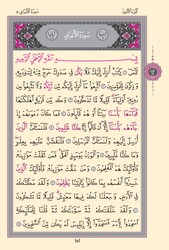 سُورَةُ الْأَعْرَافِ
سُورَةُ الْأَعْرَافِ
بِسْمِ اللَّهِ الرَّحْمَٰنِ الرَّحِيمِ
الٓمٓصٓ كِتَٰبٌ أُنزِلَ إِلَيْكَ فَلَا يَكُن فِي صَدْرِكَ حَرَجٌ مِّنْهُ لِتُنذِرَ
بِهِۦ وَذِكْرَىٰ لِلْمُؤْمِنِينَ ٱتَّبِعُوا۟ مَآ أُنزِلَ إِلَيْكُم مِّن رَّبِّكُمْ وَلَا
تَتَّبِعُوا۟ مِن دُونِهِۦٓ أَوْلِيَآءَ قَلِيلًا مَّا تَذَكَّرُونَ وَكَم مِّن قَرْيَةٍ أَهْلَكْنَٰهَا
فَجَآءَهَا بَأْسُنَا بَيَٰتًا أَوْ هُمْ قَآئِلُونَ فَمَا كَانَ دَعْوَىٰهُمْ إِذْ
جَآءَهُم بَأْسُنَآ إِلَّآ أَن قَالُوٓا۟ إِنَّا كُنَّا ظَٰلِمِينَ فَلَنَسْـَٔلَنَّ الَّذِينَ
أُرْسِلَ إِلَيْهِمْ وَلَنَسْـَٔلَنَّ الْمُرْسَلِينَ فَلَنَقُصَّنَّ عَلَيْهِم بِعِلْمٍ وَمَا كُنَّا
غَآئِبِينَ وَالْوَزْنُ يَوْمَئِذٍ الْحَقُّ فَمَن ثَقُلَتْ مَوَٰزِينُهُۥ فَأُو۟لَٰٓئِكَ
هُمُ الْمُفْلِحُونَ وَمَنْ خَفَّتْ مَوَٰزِينُهُۥ فَأُو۟لَٰٓئِكَ الَّذِينَ خَسِرُوٓا۟
أَنفُسَهُم بِمَا كَانُوا۟ بِـَٔايَٰتِنَا يَظْلِمُونَ وَلَقَدْ مَكَّنَّٰكُمْ فِي الْأَرْضِ
وَجَعَلْنَا لَكُمْ فِيهَا مَعَٰيِشَ قَلِيلًا مَّا تَشْكُرُونَ
وَلَقَدْ خَلَقْنَٰكُمْ ثُمَّ صَوَّرْنَٰكُمْ ثُمَّ قُلْنَا لِلْمَلَٰٓئِكَةِ
ٱسْجُدُوا۟ لِـَٔادَمَ فَسَجَدُوٓا۟ إِلَّآ إِبْلِيسَ لَمْ يَكُن مِّنَ السَّٰجِدِينَ
١٥١